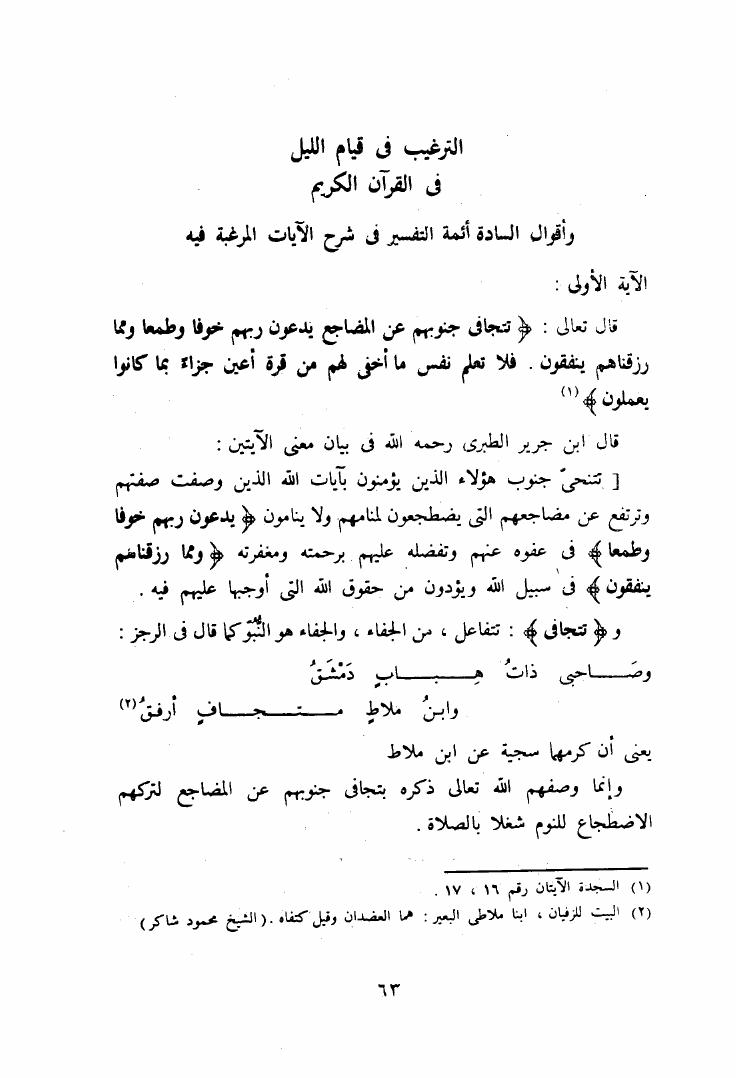 الترغيب فى قيام الليل
فى القرآن الكريم
وأقوال السادة أئمة التفسير فى شرح الآيات المرغبة فيه
الآية الأولى :
قال تعالى : ﴿ تتجافى جنوبهم عن المضاجع يدعون ربهم خوفا وطمعا ومما
رزقناهم ينفقون . فلا تعلم نفس ما أخفى لهم من قرة أعين جزاءً بما كانوا
يعملون ﴾ (١)
قال ابن جرير الطبرى رحمه الله فى بيان معنى الآيتين :
[ تتنحىّ جنوب هؤلاء الذين يؤمنون بآيات الله الذين وصفت صفتهم
وترتفع عن مضاجعهم التى يضطجعون لمنامهم ولا ينامون ﴿ يدعون ربهم خوفا
وطمعا ﴾ فى عفوه عنهم وتفضله عليهم برحمته ومغفرته ﴿ ومما رزقناهم
ينفقون ﴾ فى سبيل الله ويؤدون من حقوق الله التى أوجبها عليهم فيه .
و ﴿ تتجافى ﴾ : تتفاعل ، من الجفاء ، والجفاء هو النُّبُوّ كما قال فى الرجز :
وصَـــاحبى ذاتُ هِـــبـــابٍ دَمْشَقُ
وابـنُ ملاطٍ مـــتـــجـــافٍ أرفـقُ (٢)
يعنى أن كرمها سجية عن ابن ملاط
وإنما وصفهم الله تعالى ذكره بتجافى جنوبهم عن المضاجع لتركهم
الاضطجاع للنوم شغلا بالصلاة .
(١) السجدة الآيتان رقم ١٦ ، ١٧ .
(٢) البيت للزفيان ، ابنا ملاطى البعير : هما العضدان وقيل كتفاه . (الشيخ محمود شاكر)
٦٣